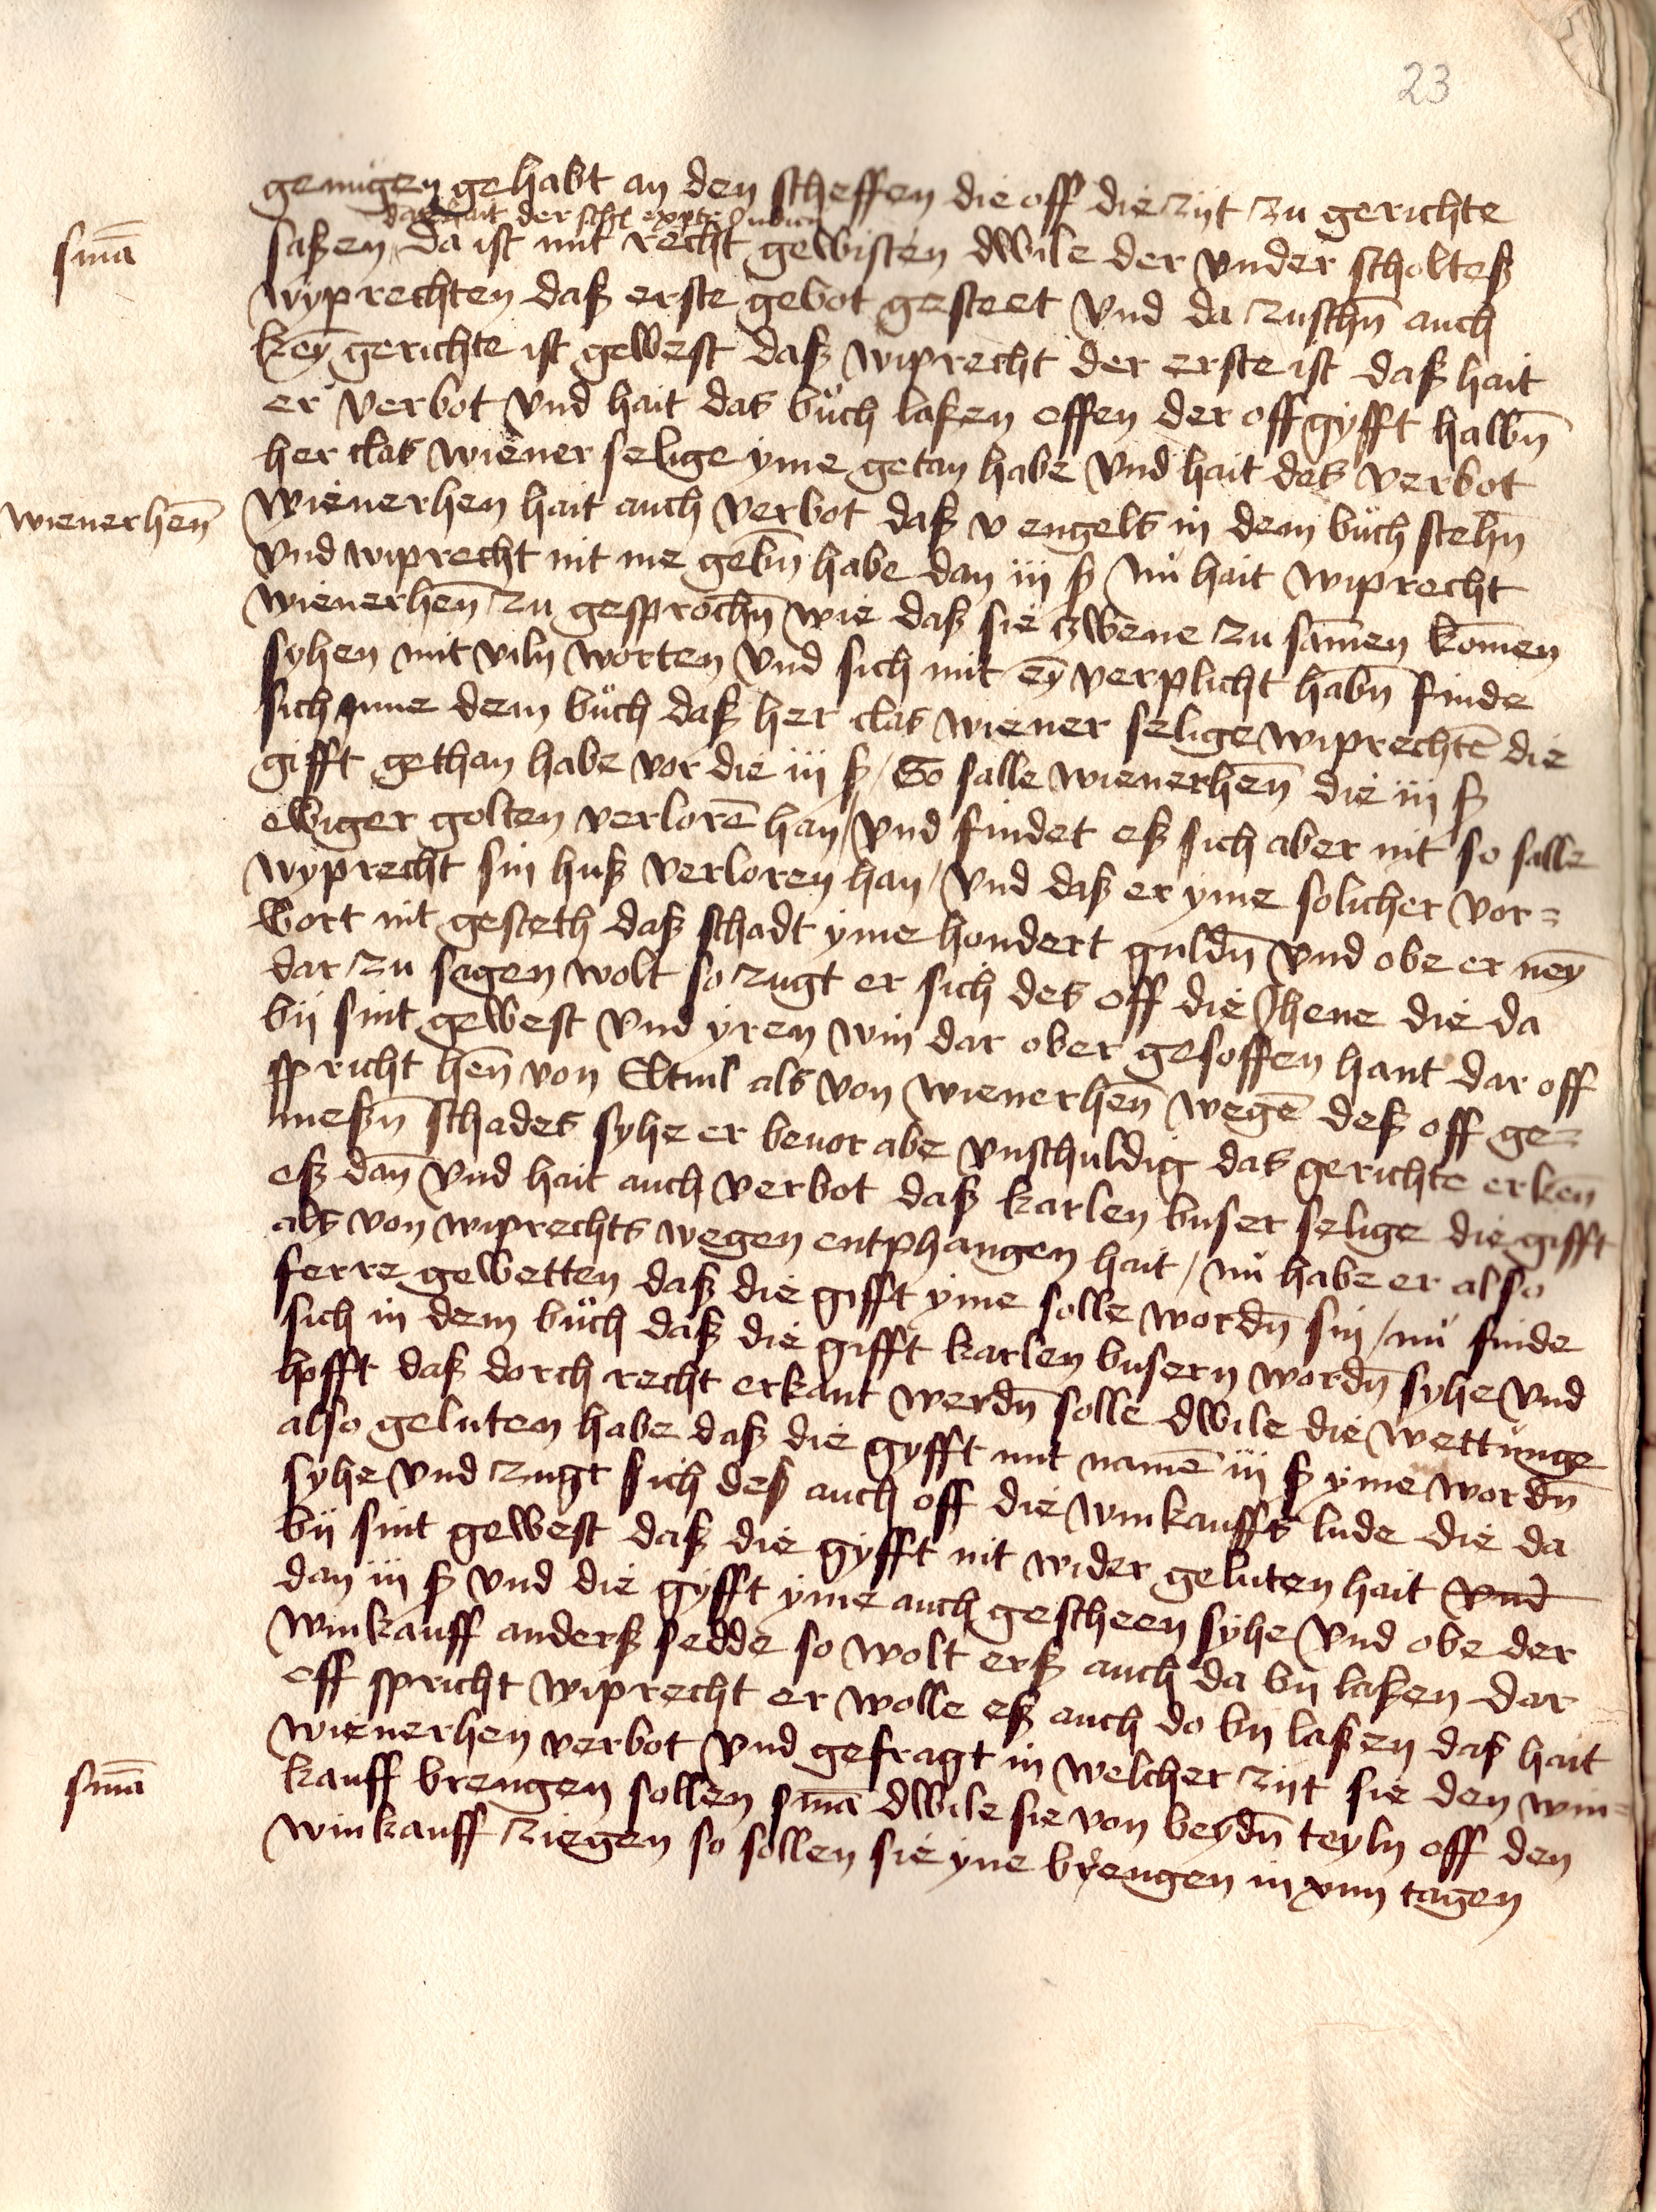 23
genugen gehabt an den scheffen die off die zijt zu gerichte
das hait der schol
saßen da ist mit recht gewisten dwile der vnder scholteß
sma̅
wyprechten daß erste gebot gesteet vnd da zusch̅n auch
key̅ gerichte ist gewest daß wiprecht der erste ist daß hait
er verbot vnd hait das bůch laßen offen der offgyfft halb̅n
her clas wiener selige yme getan habe vnd hait das verbot
wienerhen̅
wienerhen hait auch verbot daß v engels in dem bůch steh̅n
vnd wiprecht nit me geb̅n habe dan iij ß nů hait wiprecht
wienerhen̅ zu gesproch̅n wie daß sie zwene zu same̅n kome̅n
syhen mit viln worten vnd sich mit ey̅ verplicht hab̅n finde
sich ynne dem bůch daß her clas wiener selige wiprechte̅ die
gifft gethan habe vor die iij ß / So salle wienerhen̅ die iij ß
ewiger golten verlore̅ han / vnd findet eß sich aber nit so salle
wyprecht sin huß verloren han / vnd daß er yme solicher vor=
wort nit gesteth daß schadt yme hondert guld̅n vnd obe er ney̅
dar zu sagen wolt so zugt er sich des off die Jhene die da
bij sint gewest vnd yren win dar ober gesoffen hant dar off
spricht hen̅ von Eltuil als von wienerhen̅ wege̅ deß off ge=
meß̅n schades syhe er beuor abe vnschuldig das gerichte erken̅
eß dan̅ vnd hait auch verbot daß karlen buser selige die gifft
als von wiprechts wegen entphangen hait / nů habe er also
ferre gewetten daß die gifft yme solle word̅n sin / nů finde
sich in dem bůch daß die gifft karlen busern word̅n syhe vnd
hofft daß dorch recht erkant werd̅n solle dwile die wettůnge
also geluten habe daß die gyfft mit name̅ iij ß yme word̅n
syhe vnd zugt sich deß auch off die winkauffs lude die da
bij sint gewest daß die gyfft nit wider geluten hait vnd
dan iij ß vnd die gyfft yme auch gescheen syhe vnd obe der
winkauff anderß sedde so wolt erß auch da bij laßen dar
off spricht wiprecht er wolle eß auch do bij laßen daß hait
wienerhen verbot vnd gefragt in welcher zijt sie den win=
sma̅
kauff brengen sollen sma̅ dwile sie von beyd̅n teyln off den
winkauff ziegen so sollen sie yne brengen in xiiii tagen